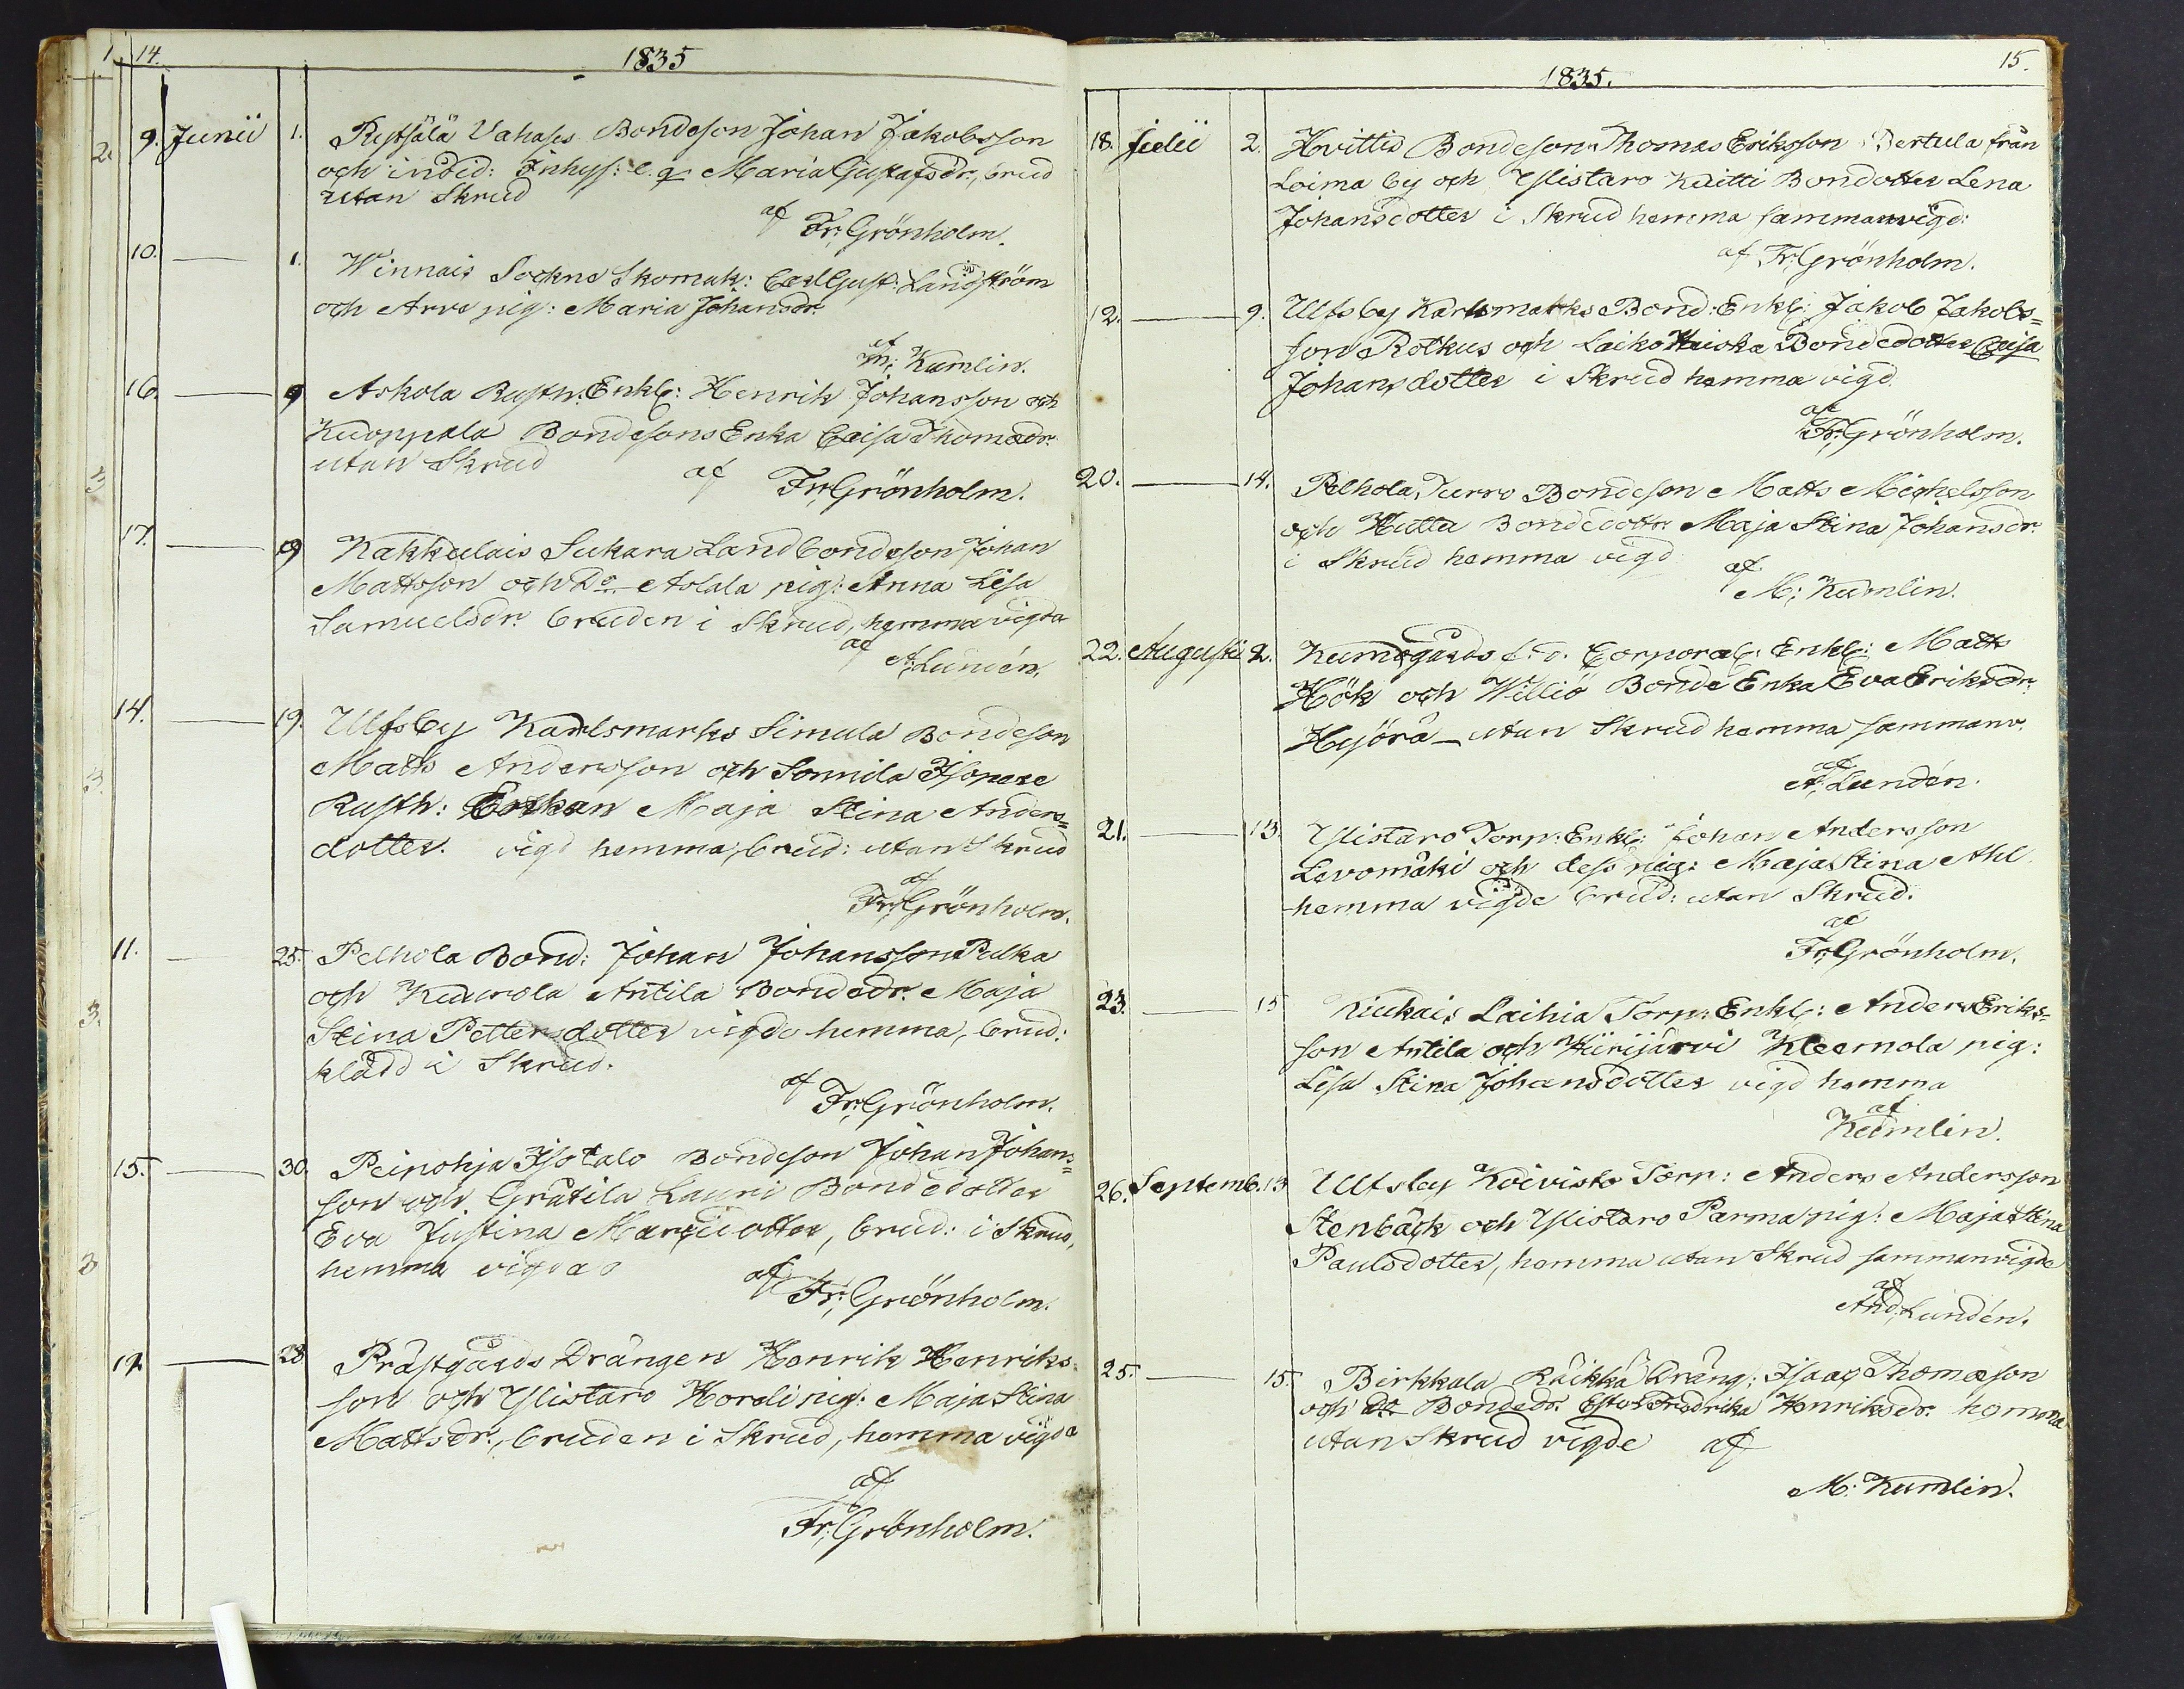 14.
1835
9. Junii 1. Pusjälä Vahases Bondeson Johan Jakobsson
och ibid: Inhys: e. q. Maria Gustafsdr., brud
utan Skrud
af Fr; Grönholm.
10. 1. Winnais Sockne Skomak: Carl Gust: Landström
och Arve pig: Maria Johansdr.
af
M; Kumlin.
16. 9 Askola Rusth: Enkl: Henrik Johansson och
Kuoppala Bondesons Enka Caisa Thomædr.
utan Skrud af Fr; Grönholm.
17. 9 Kakkulais Sukara Landbondeson Johan
Mattsson och Do Aslala pig: Anna Lisa
Samuelsdr. bruden i Skrud, hemma vigda
af
A; Lundén.
14. 19. Ulfsby Karlsmarks Simula Bondeson
Matts Andersson och Sonnila Isopere
Rusth: Enkan Maja Stina Anders=
dotter. vigd hemma, brud: utan Skrud
af
Fr; Grönholm.
11. 25. Pelhola Bond: Johan Johansson Pulka
och Kuurola Antila Bondedr. Maja
Stina Pettersdotter vigde hemma, brud:
klädd i Skrud.
af Fr; Grönholm.
15. 30. Peinohja Isotalo Bondeson Johan Johans=
son och Gråtila Lauri Bondedotter
Eva Justina Marcidotter, brud: i Skrud,
hemma vigda
af Fr; Grönholm.
19. 28 Prästgårds Drängen Henrik Henriks=
son och Ylistaro Hordi pig: Maja Stina
Mattsdr., bruden i Skrud, hemma vigda
af
Fr; Grönholm.
15.
1835.
18. Julii 2. Hvittis Bondeson Thomas Eriksson Bertula från
Loima by och Ylistaro Kuitti Bondotter Lena
Johansdotter i Skrud hemma sammanvigd:
af Fr; Grönholm.
12. 9. Ulfsby Karlsmarks Bond: Enkl: Jakob Jakobs=
son Rotkus och Laiko Huiska Bondedotter Caisa
Johansdotter i Skrud hemma vigd.
af
Fr; Grönholm.
20. 14. Pelhola, Turro Bondeson Matts Michelsson
och Hutta Bondedottr Maja Stina Johansdr.
i Skrud hemma vigd
af
M; Kumlin.
22. Augusti 2. Kumogårds f. d. Corporal: Enkl: Matts
Hök och Williö Bonde Enka Eva Eriksdr.
Hyörä — utan Skrud hemma sammanv.
af
A; Lundén.
21. 13. Ylistaro Torp: Enkl: Johan Andersson
Levomäki och dess pig: Maja Stina Ahl
hemma vigde brud: utan Skrud.
af
Fr; Grönholm.
23. 15 Kiukais Laihia Torp: Enkl: Anders Eriks=
son Antila och Hiirijärvi Kleemola pig:
Lisa Stina Johansdotter vigd hemma
af
Kumlin.
26. Septemb. 13 Ulfsby Koivisto Torp: Anders Andersson
Stenbäck och Ylistaro Parma pig: Maja Stina
Paulsdotter, hemma utan Skrud sammanvigde
af
And; Lundén.
25. 15. Birkkala Räikkä Dräng: Isaac Thomæson
och do Bondedr. Ester Fredrika Henriksdr. hemma
utan Skrud vigde af
M; Kumlin.